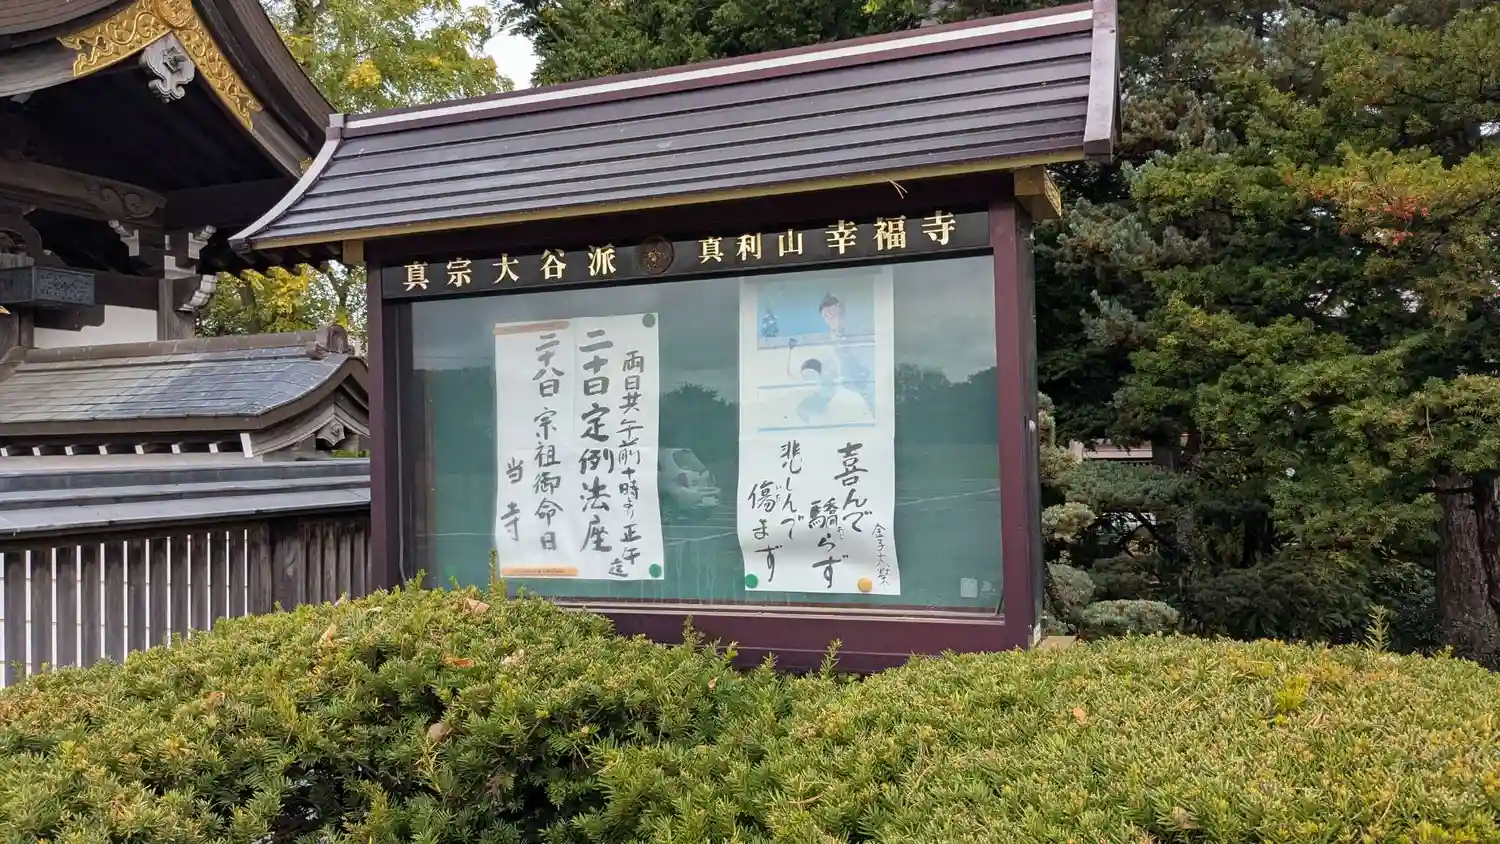 真宗大谷派 真利山 幸福寺
両日共午前十時より正午迄
二十日定例法座
二十八日宗祖御命日
当寺
金子大榮
喜んで
驕らず
悲しんで
傷まず